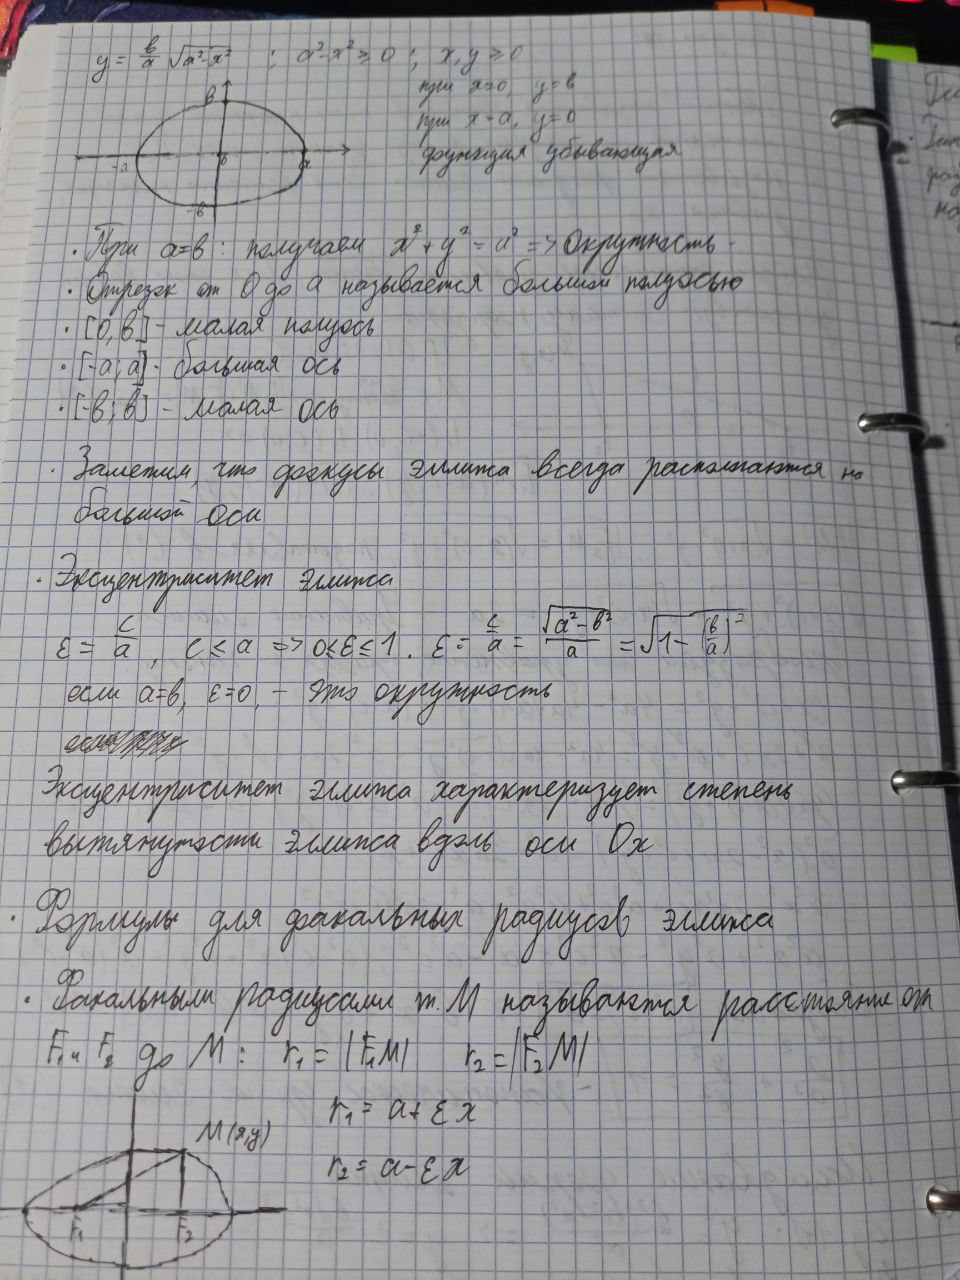 y = в/a √a²-x² ; a²-x² ≥ 0 ; x, y ≥ 0
при x=0, y=в
при x=a, y=0
функция убывающая
в
-a
0
a
-в
· При a=в : получаем x² + y² = a² => Окружность.
· Отрезок от 0 до a называется большой полуосью
· [0, в] - малая полуось
· [-a; a] - большая ось
· [-в; в] - малая ось
· Заметим, что фокусы эллипса всегда располагаются на
большой оси
· Эксцентриситет эллипса
ε = c/a , c ≤ a => 0≤ε≤1. ε = c/a = √a²-в²/a = √1-(в/a)²
если a=в, ε=0, - это окружность
Эксцентриситет эллипса характеризует степень
вытянутости эллипса вдоль оси Ox
· Формулы для факальных радиусов эллипса
· Факальными радиусами т. M называются расстояние от
F₁ и F₂ до M: r₁ = |F₁M| r₂ = |F₂M|
r₁ = a + ε x
M(x,y)
r₂ = a - ε x
F₁
F₂